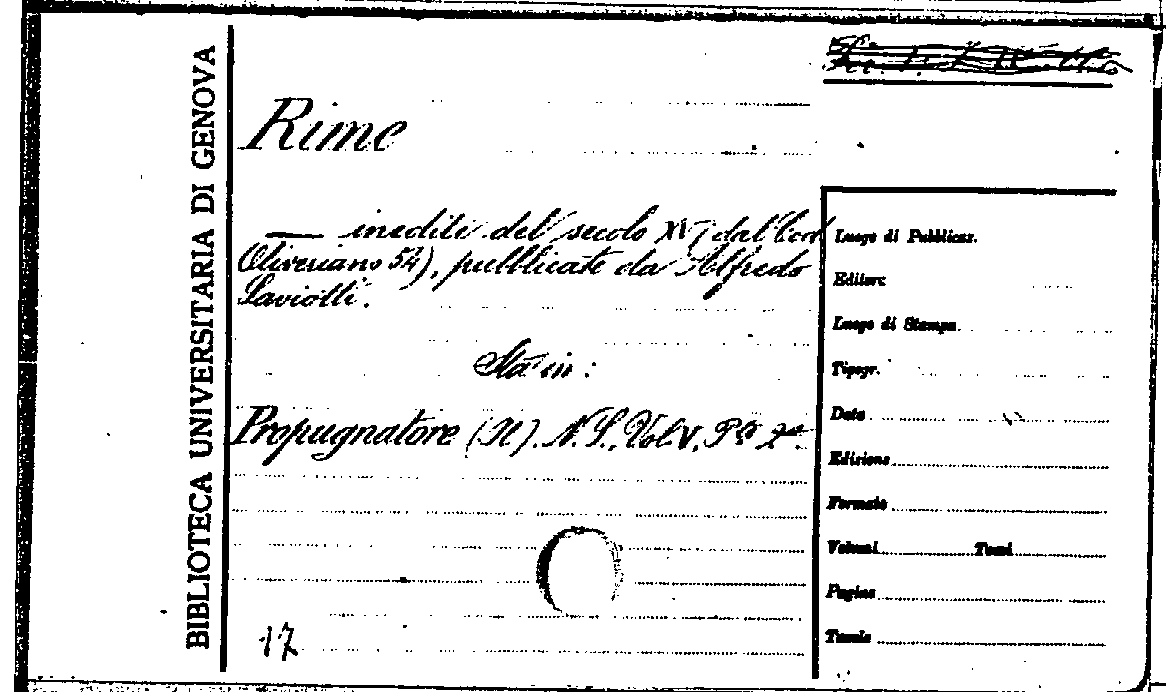 BIBLIOTECA UNIVERSITARIA DI GENOVA
Rime
—— inedite del secolo XV (dal Cod.
Oliveriano 54), pubblicate da Alfredo
Saviotti.
Sta in:
Propugnatore (Il). N. S., Vol. V, Pte 2a.
17
Luogo di Pubblicaz.
Editore
Luogo di Stampa
Tipogr.
Data
Edizione
Formato
Volumi Tomi
Pagine
Tavole